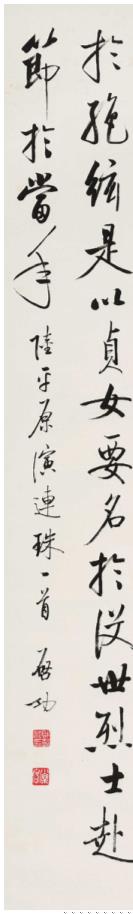 於絕絃是以貞女要名於沒世烈士赴
節於當年 陸平原演連珠一首 啟功